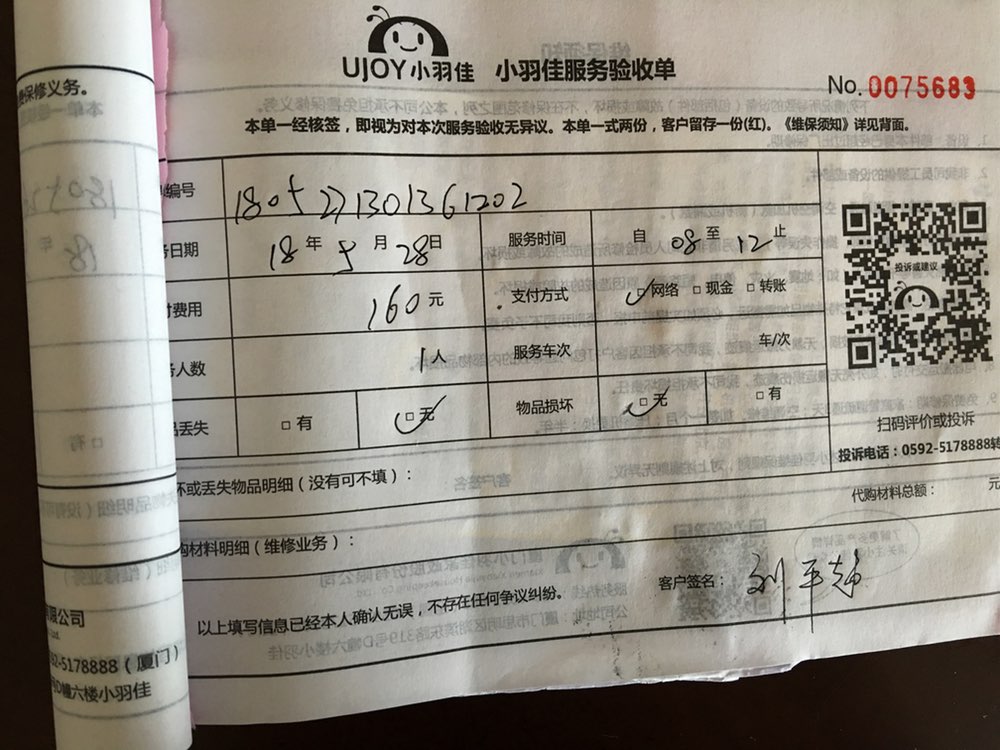 UJOY小羽佳 小羽佳服务验收单
No.0075683
本单一经核签，即视为对本次服务验收无异议。本单一式两份，客户留存一份(红)。《维保须知》详见背面。
费保修义务。
编号 1805221301361202
日期 18年5月28日 服务时间 自08至12止
费用 160元 支付方式 网络 现金 转账
人数 1人 服务车次 车/次
丢失 有 无 物品损坏 无 有
投诉或建议
扫码评价或投诉
投诉电话：0592-5178888转
坏或丢失物品明细（没有可不填）：
代购材料总额： 元
购材料明细（维修业务）：
客户签名： 刘平静
以上填写信息已经本人确认无误，不存在任何争议纠纷。
限公司
Ltd.
92-5178888（厦门）
号D幢六楼小羽佳